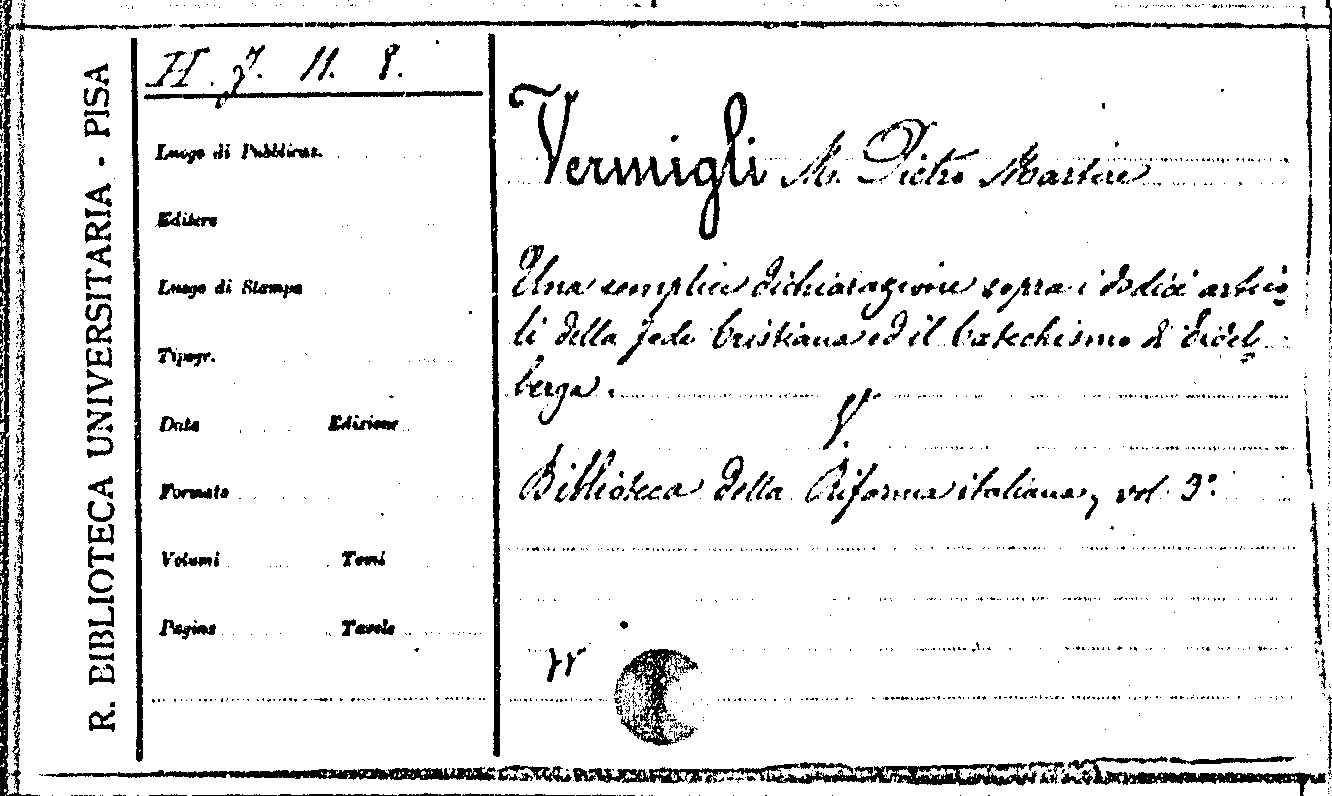 R. BIBLIOTECA UNIVERSITARIA - PISA
H. 7. 11. 8.
Luogo di Pubblicaz.
Editore
Luogo di Stampa
Tipogr.
Data Edizione
Formato
Volumi Tomi
Pagine Tavole
Vermigli M. Pietro Martire
Una semplice dichiarazione sopra i dodici artico-
li della fede Cristiana ed il Catechismo di Eidel-
berga.
V
Biblioteca della Riforma italiana, vol. 3º.